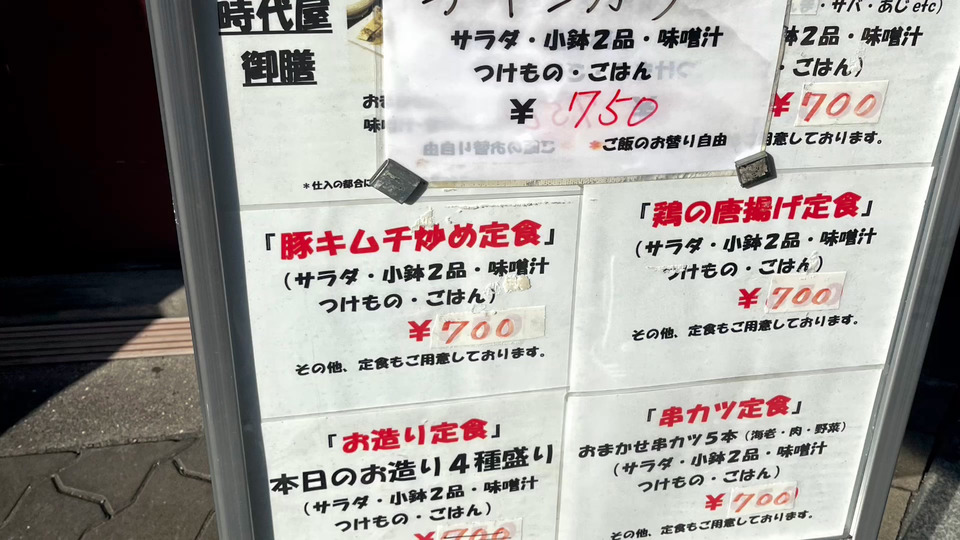 時代屋
御膳
サラダ・小鉢2品・味噌汁
つけもの・ごはん
¥ 750
*ご飯のお替り自由
・サバ・あじ etc)
鉢2品・味噌汁
・ごはん)
¥700
用意しております。
*仕入の都合に
『豚キムチ炒め定食』
(サラダ・小鉢2品・味噌汁
つけもの・ごはん)
¥700
その他、定食もご用意しております。
『鶏の唐揚げ定食』
(サラダ・小鉢2品・味噌汁
つけもの・ごはん)
¥700
その他、定食もご用意しております。
『お造り定食』
本日のお造り4種盛り
(サラダ・小鉢2品・味噌汁
つけもの・ごはん)
¥700
『串カツ定食』
おまかせ串カツ5本(海老・肉・野菜)
(サラダ・小鉢2品・味噌汁
つけもの・ごはん)
¥700
その他、定食もご用意しております。